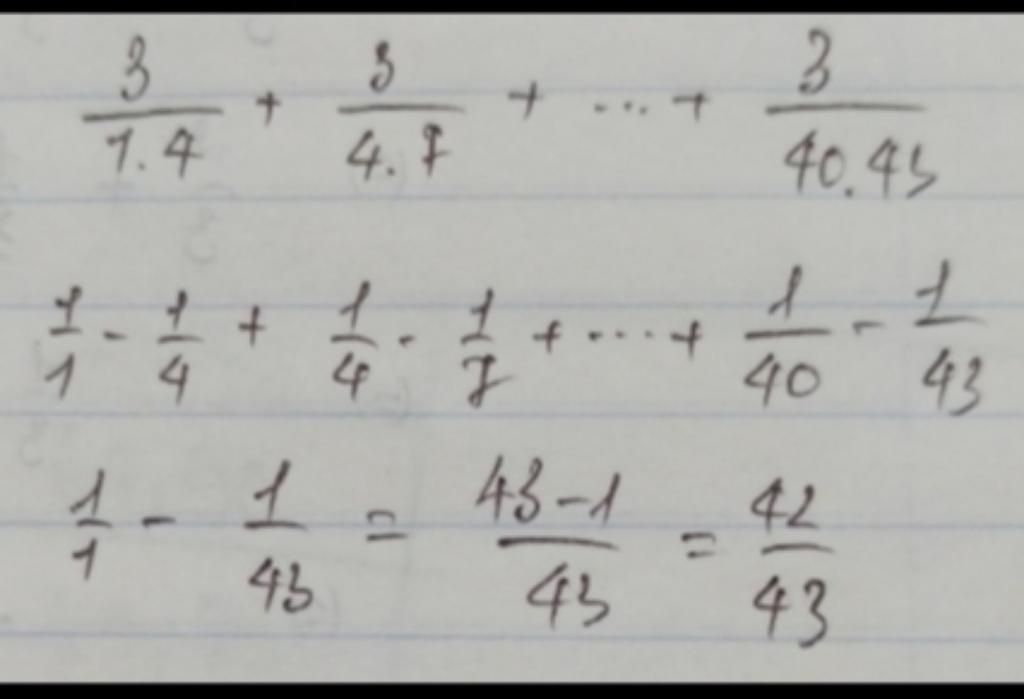 3/1.4 + 3/4.7 + ... + 3/40.43
1/1 - 1/4 + 1/4 - 1/7 + ... + 1/40 - 1/43
1/1 - 1/43 = 43-1/43 = 42/43